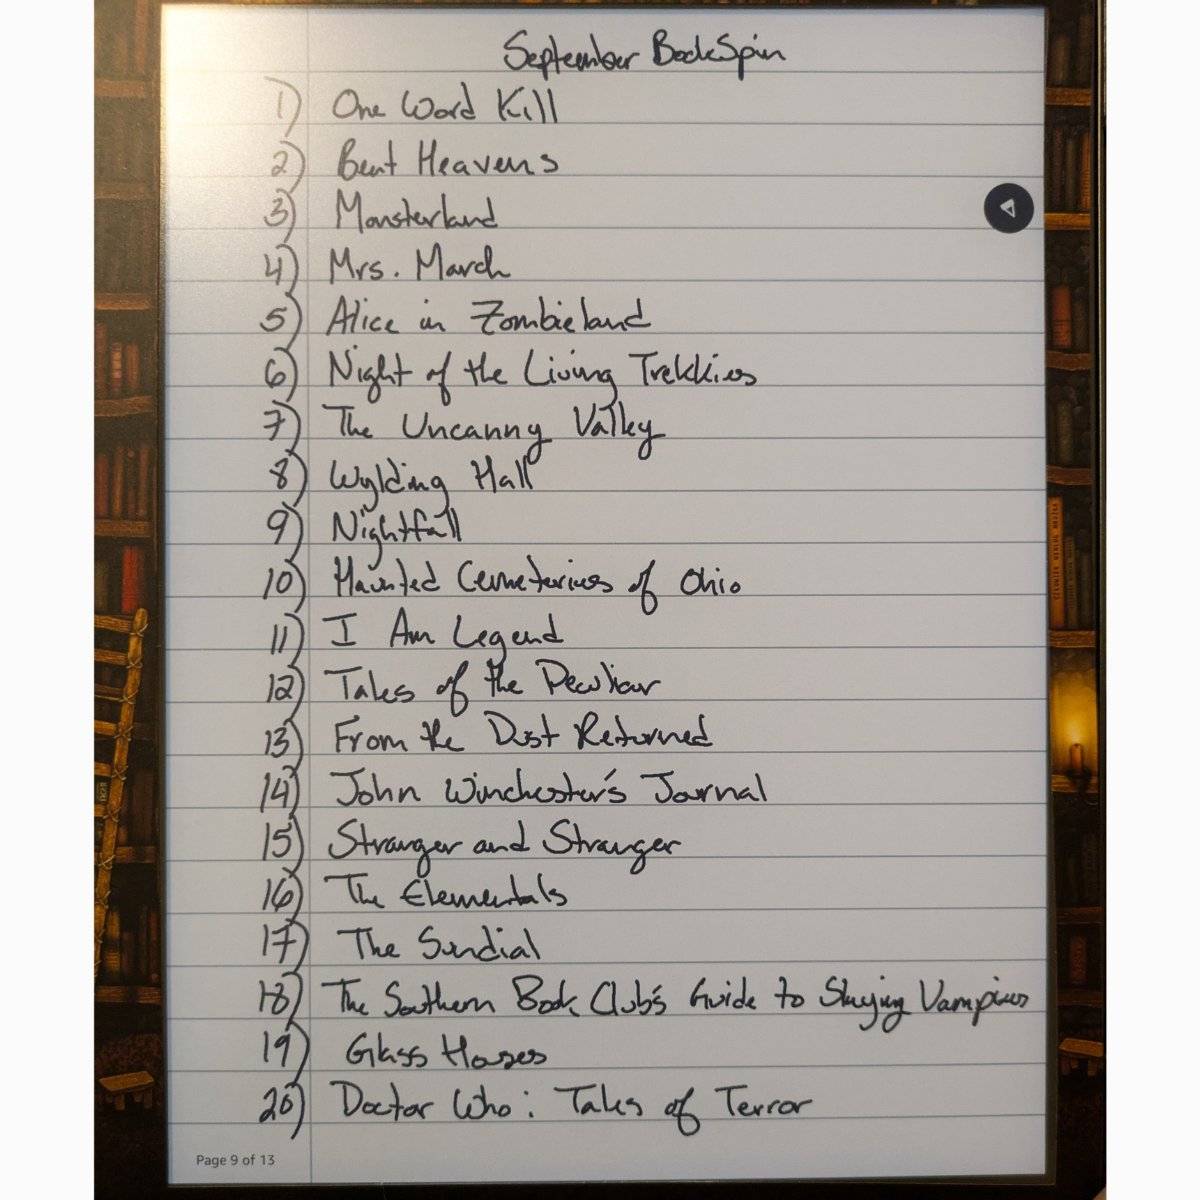 September BookSpin
1) One Word Kill
2) Bent Heavens
3) Monsterland
4) Mrs. March
5) Alice in Zombieland
6) Night of the Living Trekkies
7) The Uncanny Valley
8) Wylding Hall
9) Nightfall
10) Haunted Cemeteries of Ohio
11) I Am Legend
12) Tales of the Peculiar
13) From the Dust Returned
14) John Winchester's Journal
15) Stranger and Stranger
16) The Elementals
17) The Sundial
18) The Southern Book Club's Guide to Slaying Vampires
19) Glass Houses
20) Doctor Who: Tales of Terror
Page 9 of 13